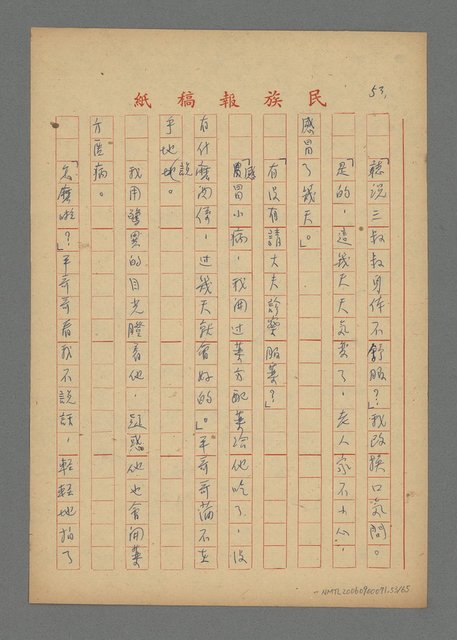 53,
紙稿報族民
「聽說三叔叔身体不舒服？」我改換口氣問。
「是的，這幾天天氣変了，老人家不小心，
感冒了幾天。」
「有沒有請大夫診葯服葯？」
「感冒小病，我開过葯方配葯給他吃了，沒
有什麼関係，过幾天就會好的。」平哥哥滿不在
乎地說。
我用驚異的目光瞪着他，疑惑他也會開葯
方医病。
「怎麼啦？」平哥哥看我不說話，輕輕地拍了
NMTL20060900091.53/65